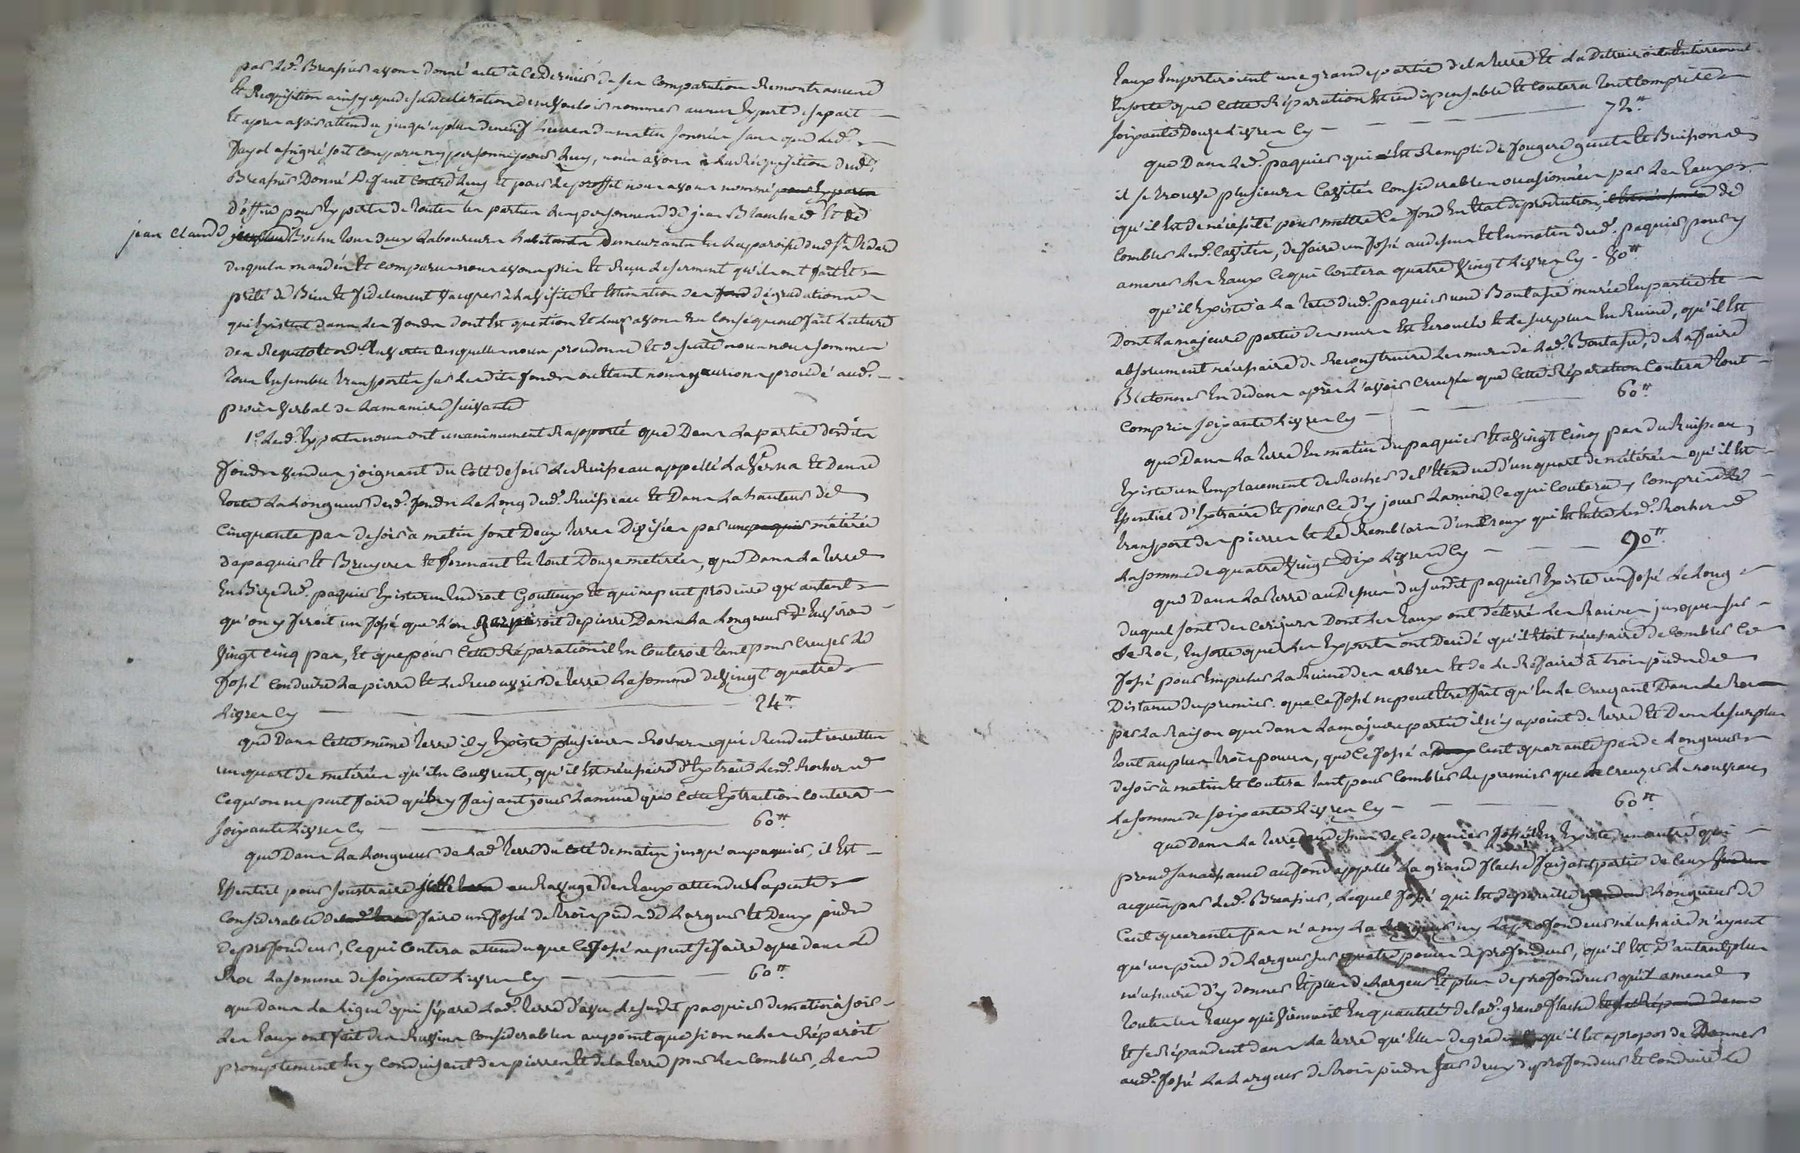 par led. Breasius avons donné acte à ce dernier de sa comparution Remontrances
et Requisition ainsy que de sa declaration de ne vouloir nommer aucun Expert de sa part
Et apres avoir attendu jusqu'a plus de neuf heures du matin sonnées sans que led.
Fayol assigné soit comparu ny personne pour luy, nous avons à la Requisition dud.
Breasius Donné Defaut Contre luy et pour le proffit nous avons nommé pour Experts
D'office pour Experts de toutes les parties les personnes de jean Blanchard Et de
jean Claude Bochu tous deux Laboureurs habitants Demeurants En la paroisse dud. St
desquels mandés Et comparus nous avons pris Et Reçu le serment qu'ils ont fait Et
prété de Bien Et fidelement vacquer à la visite Et Estimation des dégradations
qui Existent dans les fonds dont Est question Et leur avons En Consequence fait Lecture
des Requete Et ord. En vertu desquelles nous proccedons et de suite nous nous sommes
tous Ensemble transportés sur lesdits fonds ou Etant nous aurions procédé aud.
procès verbal de la maniere suivante
1° Lesd. Experts nous ont unanimement Rapporté que Dans la partie desdits
fonds vendus joignant du Coté de soir le Ruisseau appellé La Verna Et Dans
toute la Longueur desd. fonds Le Long dud. Ruisseau Et Dans la hauteur de
Cinquante pas de soir à matin sont Deux terres Divisées par une métérée
de paquier Et Bruyeres Et formant En tout Douze meterées, que Dans la terre
En Bize dud. paquier Existe un Endroit Gouteux Et qui ne peut produire qu'autant
qu'on y feroit un fossé que l'on de pierre Dans la Longueur d'Environ
Vingt cinq pas, Et que pour Cette Réparation il En Couteroit tant pour Creuser Le
fossé conduire la pierre Et le Recouvrir de terre La somme de Vingt quatre
Livres Cy — 24 ₶
que Dans Cette même terre il y Existe plusieurs Rochers qui Rendent inculte
un quart de meterée qu'ils Couvrent, qu'il Est nécessaire d'Extraire Lesd. Rochers
Ce qu'on ne peut faire qu'En y faisant jouer La mine que Cette Extraction Coutera
Soixante Livres Cy — 60 ₶
que Dans La Longueur de lad. terre du Coté de matin jusqu'au paquier, il Est
Essentiel pour soustraire au Ravage des Eaux attendu La pente
Considerable de faire un fossé de trois pieds de Largeur Et Deux pieds
de profondeur, Ce qui Coutera attendu que Ce fossé ne peut se faire que dans Le
Roc La somme de soixante Livres Cy — 60 ₶
que dans La Ligne qui sépare Lad. terre d'avec Le susdit paquier de matin à soir
Les Eaux ont fait des Ravins Considerables au point que si on ne les Réparoit
promptement En y conduisant des pierres Et de la terre pour les Combler, Les
Eaux Emporteroient une grande partie de la terre Et La Detruiroient Entierement
En sorte que Cette Réparation Est indispensable Et Coutera tout Compris
Soixante Douze Livres Cy — 72 ₶
que Dans Led. paquier qui Est Rempli de fougere genets Et Buissons
il se trouve plusieurs Cavités Considerables occasionnées par Les Eaux
qu'il Est de nécéssité pour mettre Ce fond En Etat de production de
Combler Lesd. Cavités, de faire un fossé audessus Et En matin dud. paquier pour y
amener Les Eaux Ce qui Coutera quatre Vingt Livres Cy - 80 ₶
qu'il Existe à La tete dud. paquier une Boutasse murée En partie Et
Dont La majeure partie des murs Est Ecroulée Et Le surplus En Ruine, qu'il Est
absolument nécessaire de Reconstruire Les murs de Lad. Boutasse, de La faire
Bletonner En Dedans après L'avoir Creuzée que Cette Réparation Coutera tout
Compris soixante Livres Cy — 60 ₶
que Dans La terre En matin du paquier Et à Vingt Cinq pas du Ruisseau,
Existe un Emplacement de Rocher de l'Etendue d'un quart de méterée qu'il Est
Essentiel d'Extraire Et pour Ce d'y jouer La mine Ce qui Coutera y Compris Le
transport des pierres Et Le Remblais d'un Creux qui Est Entre Lesd. Rochers
La somme de quatre Vingt Dix Livres Cy — 90 ₶
que Dans La terre audessus du susdit paquier Existe un fossé Le Long
duquel sont des Cerisiers Dont Les Eaux ont déterré Les Racines jusques sur
Le Roc, En sorte que Les Experts ont Decidé qu'il Etoit nécessaire de Combler Ce
fossé pour Empecher La Ruine des arbres Et de Le Refaire à trois pieds de
Distance du premier. que Ce fossé ne peut Etre fait qu'En Le Creuzant Dans Le Roc
par La Raison que dans La majeure partie il n'y a point de terre Et Dans Le surplus
tout au plus trois pouces, que Ce fossé a Cent quarante pas de Longueur
de soir à matin Et Coutera tant pour Combler Le premier que Creuzer Le nouveau,
La somme de soixante Livres Cy — 60 ₶
que Dans La terre au dessus de Ce dernier fossé il En Existe un autre qui
prend au fond appellé La grand flache faisant partie de Ceux
acquis par Led. Breasius, Lequel fossé qui Est de pareille Longueur de
Cent quarente pas n'a ny La Largeur ny La profondeur nécessaire n'ayant
qu'un pied de Largeur sur quatre pouces de profondeur, qu'il Est D'autant plus
nécessaire d'y donner Et plus de Largeur Et plus de profondeur qu'il amene
toutes les Eaux qui Viennent En quantité de Lad. grand flache
Et se Répandent dans La terre qu'Elles degradent qu'il Est apropos de Donner
aud. fossé La Largeur de trois pieds sur deux de profondeur Et Conduire Le